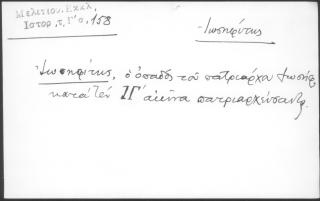 Μελετίου, Εκκλ.
Ιστορ., τ. Γ'σ, 158
Ἰωσηφίτης
Ἰωσηφίτης, ὁ ὀπαδὸς τοῦ πατριάρχου Ἰωσήφ
κατὰ τὸν ΙΓ' αἰῶνα πατριαρχεύσαντ.